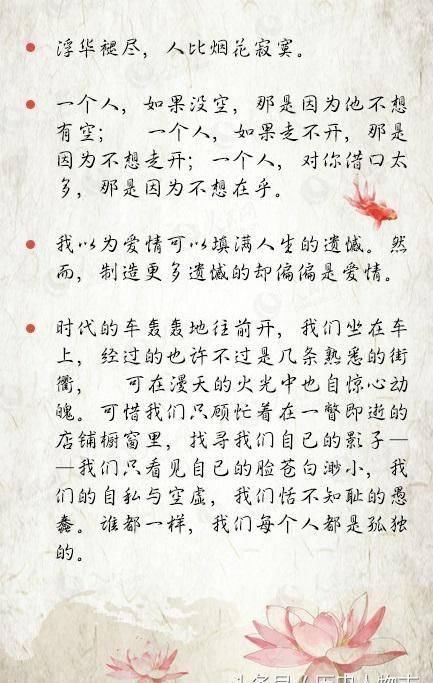 浮华褪尽，人比烟花寂寞。
一个人，如果没空，那是因为他不想
有空； 一个人，如果走不开，那是
因为不想走开；一个人，对你借口太
多，那是因为不想在乎。
我以为爱情可以填满人生的遗憾。然
而，制造更多遗憾的却偏偏是爱情。
时代的车轰轰地往前开，我们坐在车
上，经过的也许不过是几条熟悉的街
衢， 可在漫天的火光中也自惊心动
魄。可惜我们只顾忙着在一瞥即逝的
店铺橱窗里，找寻我们自己的影子—
—我们只看见自己的脸苍白渺小，我
们的自私与空虚，我们恬不知耻的愚
蠢。谁都一样，我们每个人都是孤独
的。
头条号/历史人物志